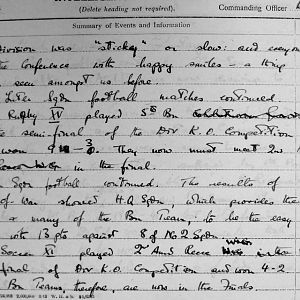 (Delete heading not required).
Commanding Officer
Summary of Events and Information
Division was "stickey" or slow: and everyone
the Conference with happy smiles - a thing
seen amongst us before.
Inter Sqdn football matches continued.
Rugby XV played 5th Bn
the semi-final of the Div K.O. Competition
won 9-3. They now must meet 2nd
in the final.
Sqdn football continued. The results of
of war showed H.Q Sqdn, which provides the
& many of the Bn Team, to be the easy
with 13 pts against 8 of No 2 Sqdn.
Soccer XI played 2nd Armd Recce when
final of Div K.O. Competition and won 4-2
Bn Teams, therefore, are now in the Finals.